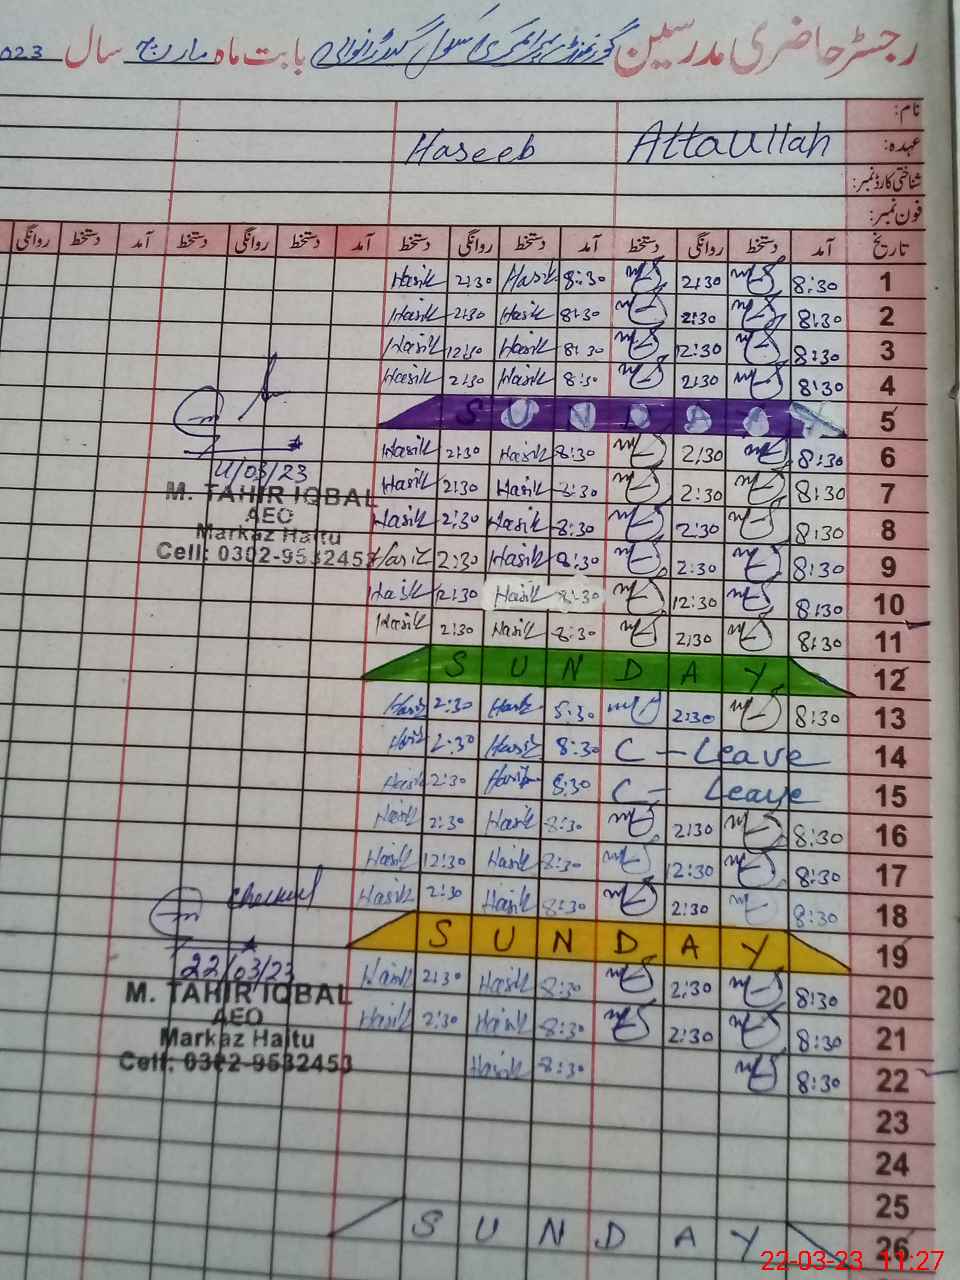 رجسٹر حاضری مدرسین گورنمنٹ پرائمری سکول بابت ماہ مارچ سال 023
نام:
عہدہ: Attaullah Haseeb
شناختی کارڈ نمبر:
فون نمبر:
تاریخ آمد دستخط روانگی دستخط آمد دستخط روانگی دستخط آمد دستخط روانگی دستخط آمد دستخط روانگی
1 8:30 2:30 8:30 Hasib 2:30 Hasib
2 8:30 2:30 8:30 Hasib 2:30 Hasib
3 8:30 12:30 8:30 Hasib 12:30 Hasib
4 8:30 2:30 8:30 Hasib 2:30 Hasib
5 SUNDAY
6 8:30 2:30 8:30 Hasib 2:30 Hasib
7 8:30 2:30 8:30 Hasib 2:30 Hasib
8 8:30 2:30 8:30 Hasib 2:30 Hasib
9 8:30 2:30 8:30 Hasib 2:30 Hasib
10 8:30 12:30 8:30 Hasib 12:30 Hasib
11 8:30 2:30 8:30 Hasib 2:30 Hasib
12 SUNDAY
13 8:30 2:30 8:30 Hasib 2:30 Hasib
14 C - Leave 8:30 Hasib 2:30 Hasib
15 C - Leave 8:30 Hasib 2:30 Hasib
16 8:30 2:30 8:30 Hasib 2:30 Hasib
17 8:30 12:30 8:30 Hasib 12:30 Hasib
18 8:30 2:30 8:30 Hasib 2:30 Hasib
19 SUNDAY
20 8:30 2:30 8:30 Hasib 2:30 Hasib
21 8:30 2:30 8:30 Hasib 2:30 Hasib
22 8:30 8:30 Hasib
23
24
25
26 SUNDAY
/03/23
M. TAHIR IQBAL
AEO
Markaz Haitu
Cell: 0302-9532453
Checked
22/03/23
M. TAHIR IQBAL
AEO
Markaz Haitu
Cell: 0302-9532453
22-03-23 11:27